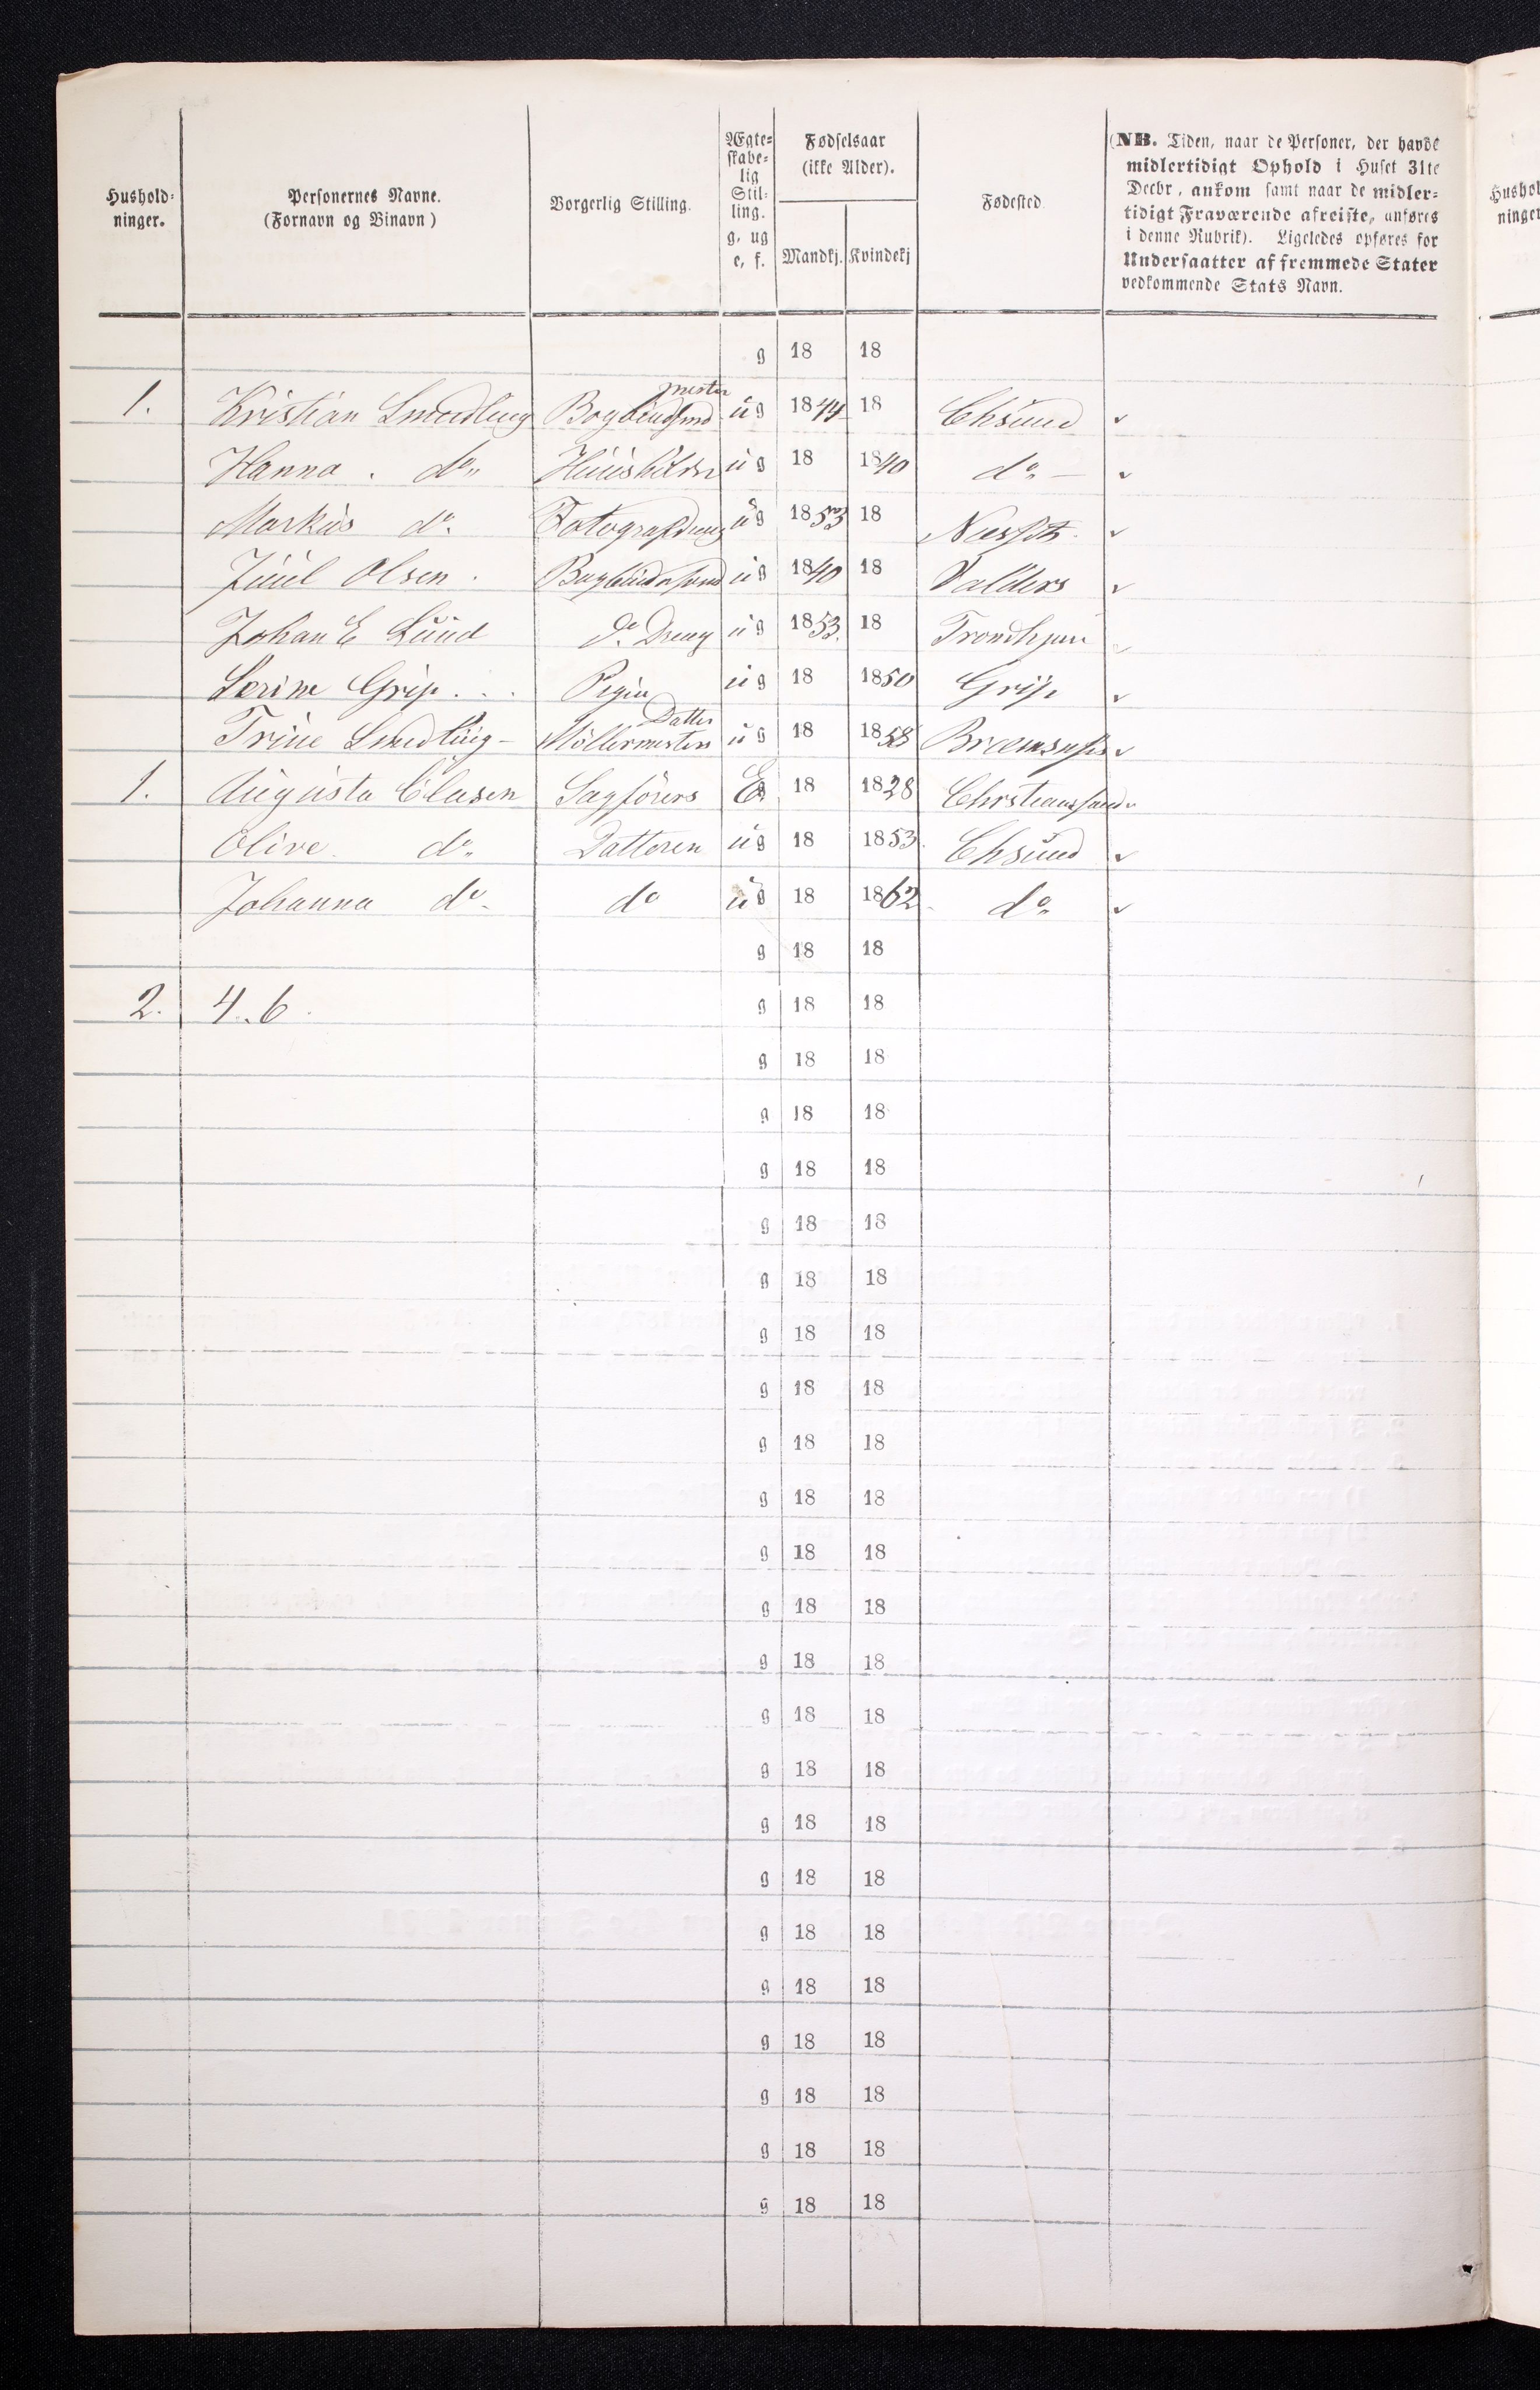 Hushold-
ninger.
Personernes Navne.
(Fornavn og Binavn)
Borgerlig Stilling.
Ægte-
skabe-
lig
Stil-
ling.
g, ug
e, f.
Fødselsaar
(ikke Alder).
Mandkj. Kvindekj
Fødested
(NB. Tiden, naar de Personer, der havde
midlertidigt Ophold i Huset 31te
Decbr, ankom samt naar de midler-
tidigt Fraværende afreiste, anføres
i denne Rubrik). Ligeledes opføres for
Undersaatter af fremmede Stater
vedkommende Stats Navn.
g 18 18
mester
1. Kristian Smedling ug 1844 18 Chsund
Hanna. do ug 18 1840 do
Markus do ug 1853 18
Juul Olsen. ug 1840 18 Valders
Johan E Lund do Dreng ug 1853. 18 Trondhjem
Serine Grip... Pigen ug 18 1850 Grip
Datter
Trine Smedling- Möllermesters ug 18 1858
1. Augusta Clasen Sagförers E 18 1828 Christianssand
Olive do Datteren ug 18 1853 Chsund
Johanna do do ug 18 1862 do
g 18 18
2. 4.6 g 18 18
g 18 18
g 18 18
g 18 18
g 18 18
g 18 18
g 18 18
g 18 18
g 18 18
g 18 18
g 18 18
g 18 18
g 18 18
g 18 18
g 18 18
g 18 18
g 18 18
g 18 18
g 18 18
g 18 18
g 18 18
g 18 18
g 18 18
Hushol
ninger